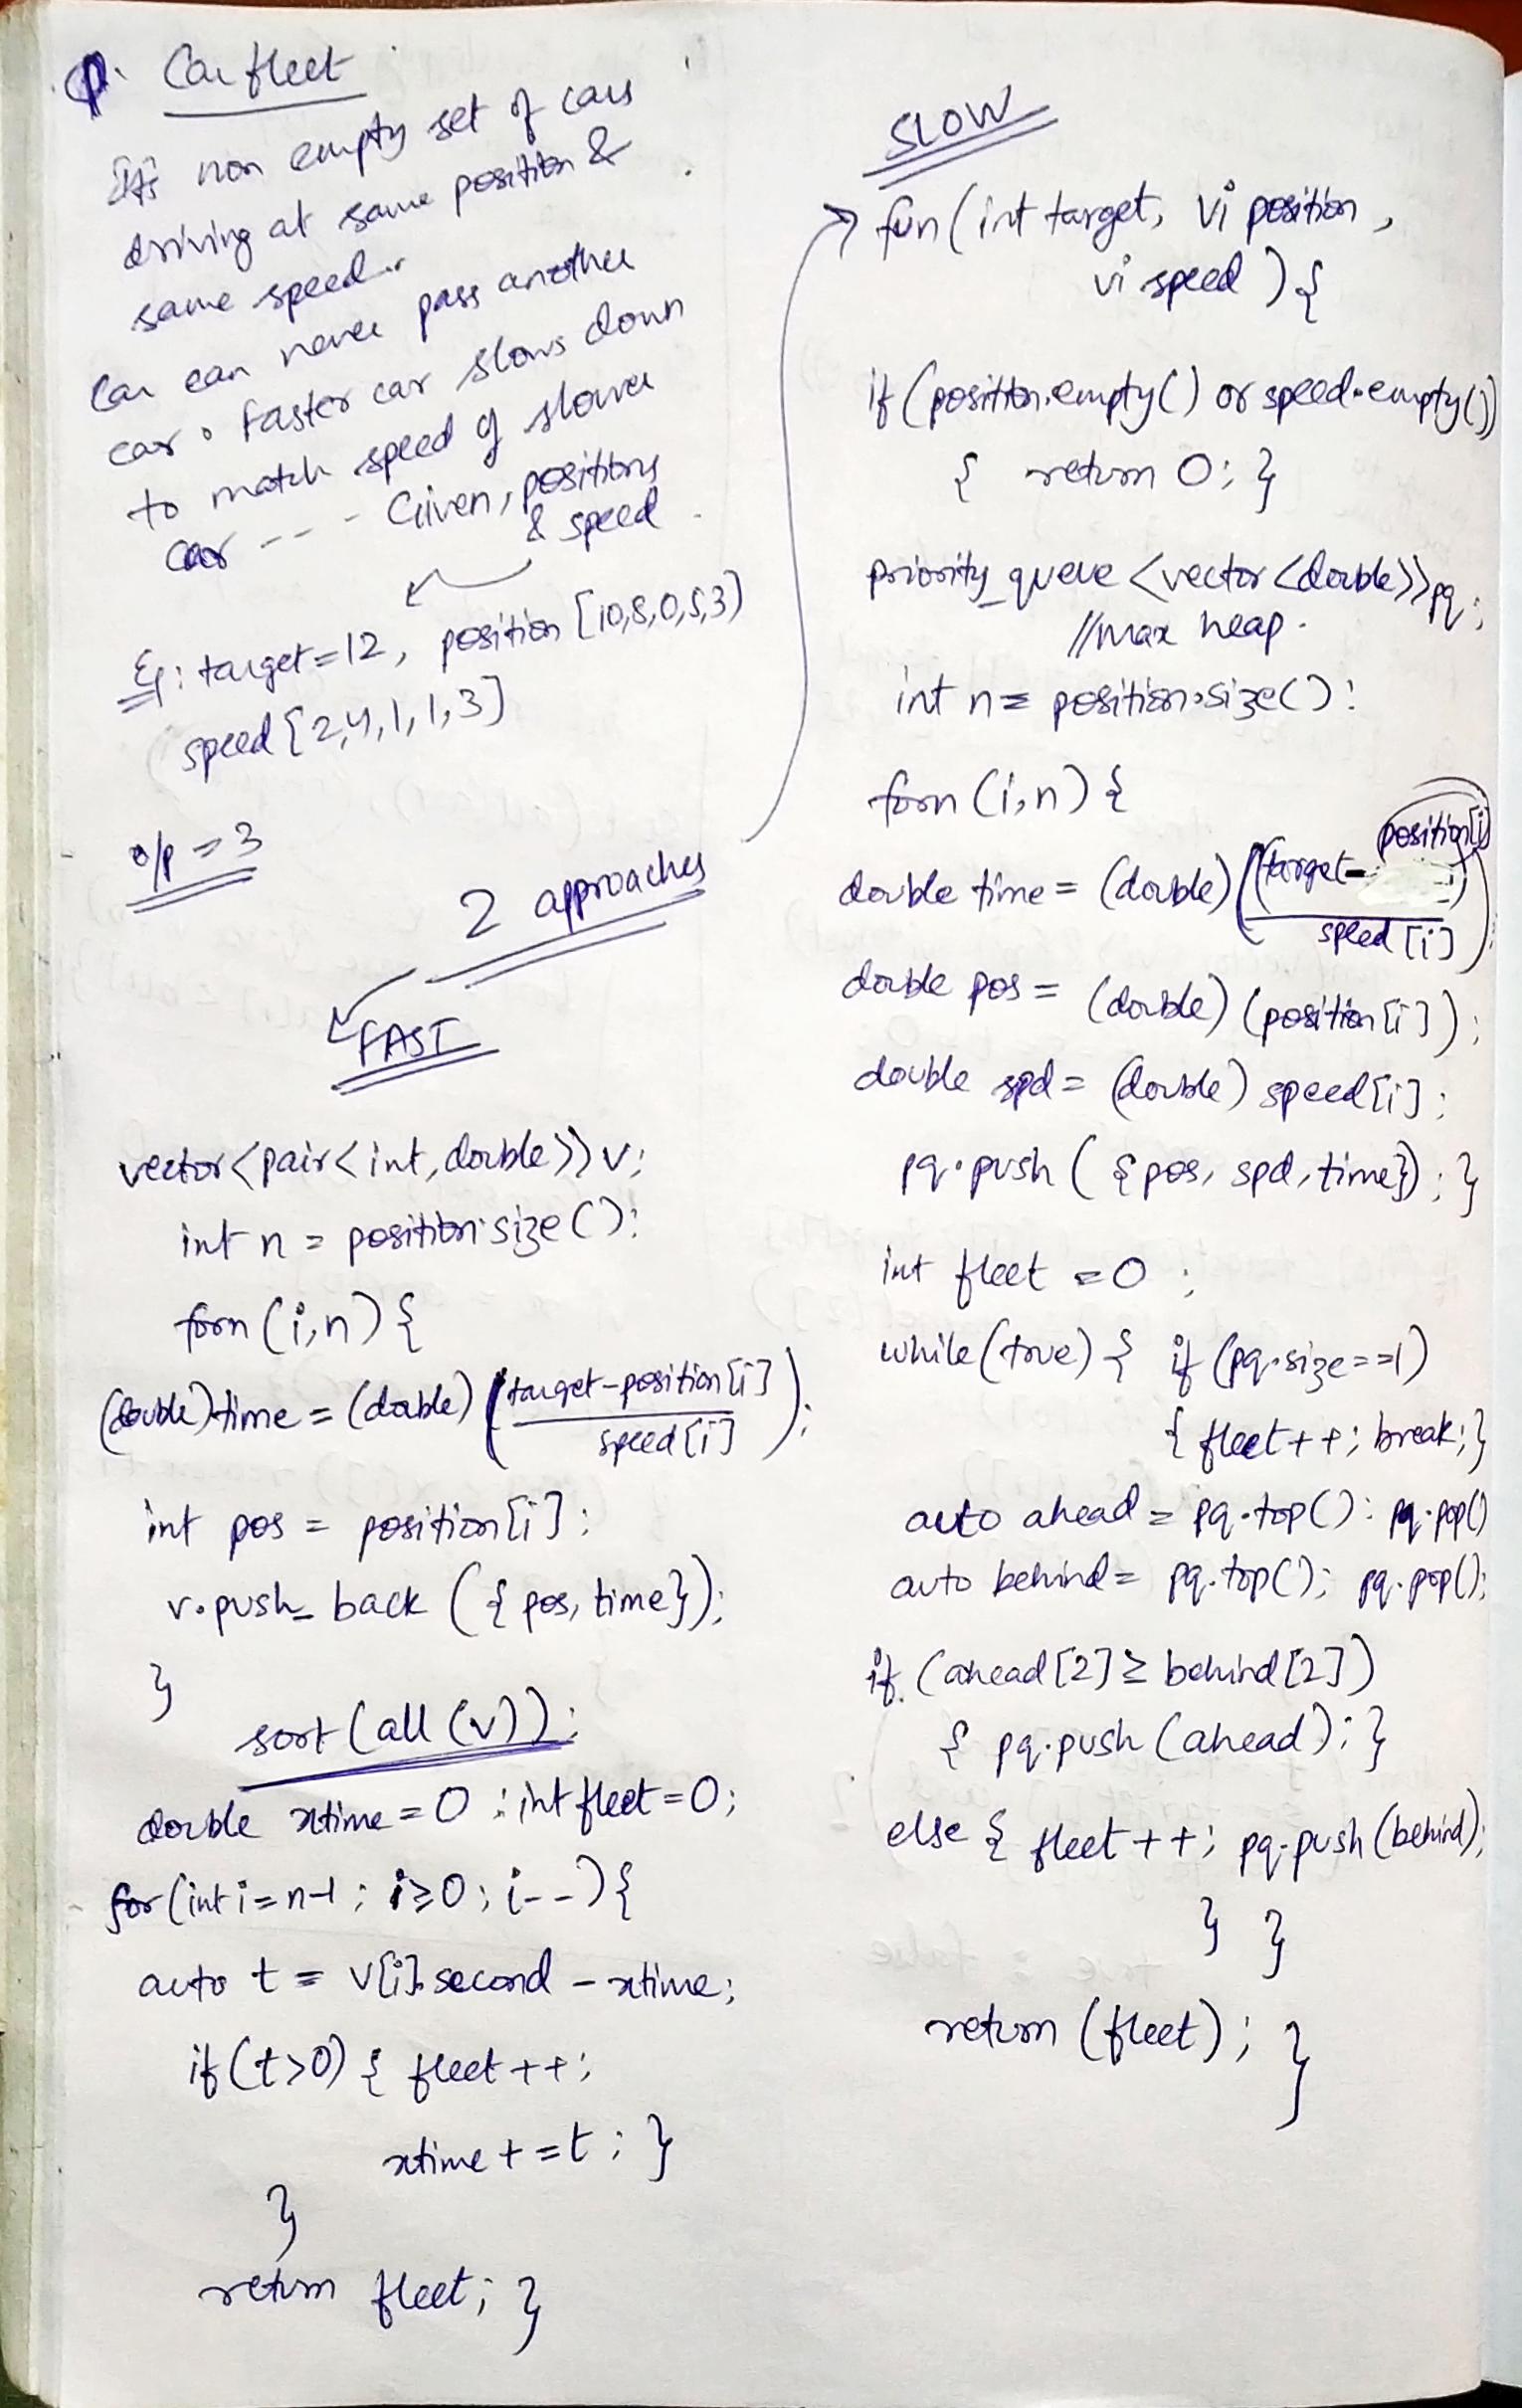 Q. Car fleet
It's non empty set of cars
driving at same position &
same speed.
Car can never pass another
car. Faster car slows down
to match speed of slower
car --- Given, positions
& speed.
Eg: target=12, position [10,8,0,5,3)
speed [2,4,1,1,3]
o/p = 3
2 approaches
FAST
vector<pair<int,double>> v;
int n = position.size();
forn (i,n) {
(double) time = (double) (target-position[i]
speed[i] );
int pos = position[i];
v.push_back ({pos, time});
}
sort(all(v));
double xtime = 0 ; int fleet=0;
for(int i=n-1; i≥0; i--){
auto t = v[i].second - xtime;
if(t>0) { fleet++;
xtime + =t; }
}
return fleet; }
SLOW
fun(int target, vi position,
vi speed ) {
if (position.empty() or speed.empty())
{ return 0; }
priority_queue <vector<double>> pq;
//max heap.
int n = position.size();
forn (i,n) {
double time = (double) ((target- position[i])
speed [i] );
double pos = (double) (position[i]);
double spd = (double) speed[i];
pq.push ( {pos, spd, time}) ; }
int fleet = 0 ;
while(true) { if (pq.size==1)
{ fleet++; break;}
auto ahead = pq.top(); pq.pop()
auto behind = pq.top(); pq.pop();
if (ahead[2] ≥ behind[2])
{ pq.push (ahead); }
else { fleet++; pq.push(behind);
} }
return (fleet); }